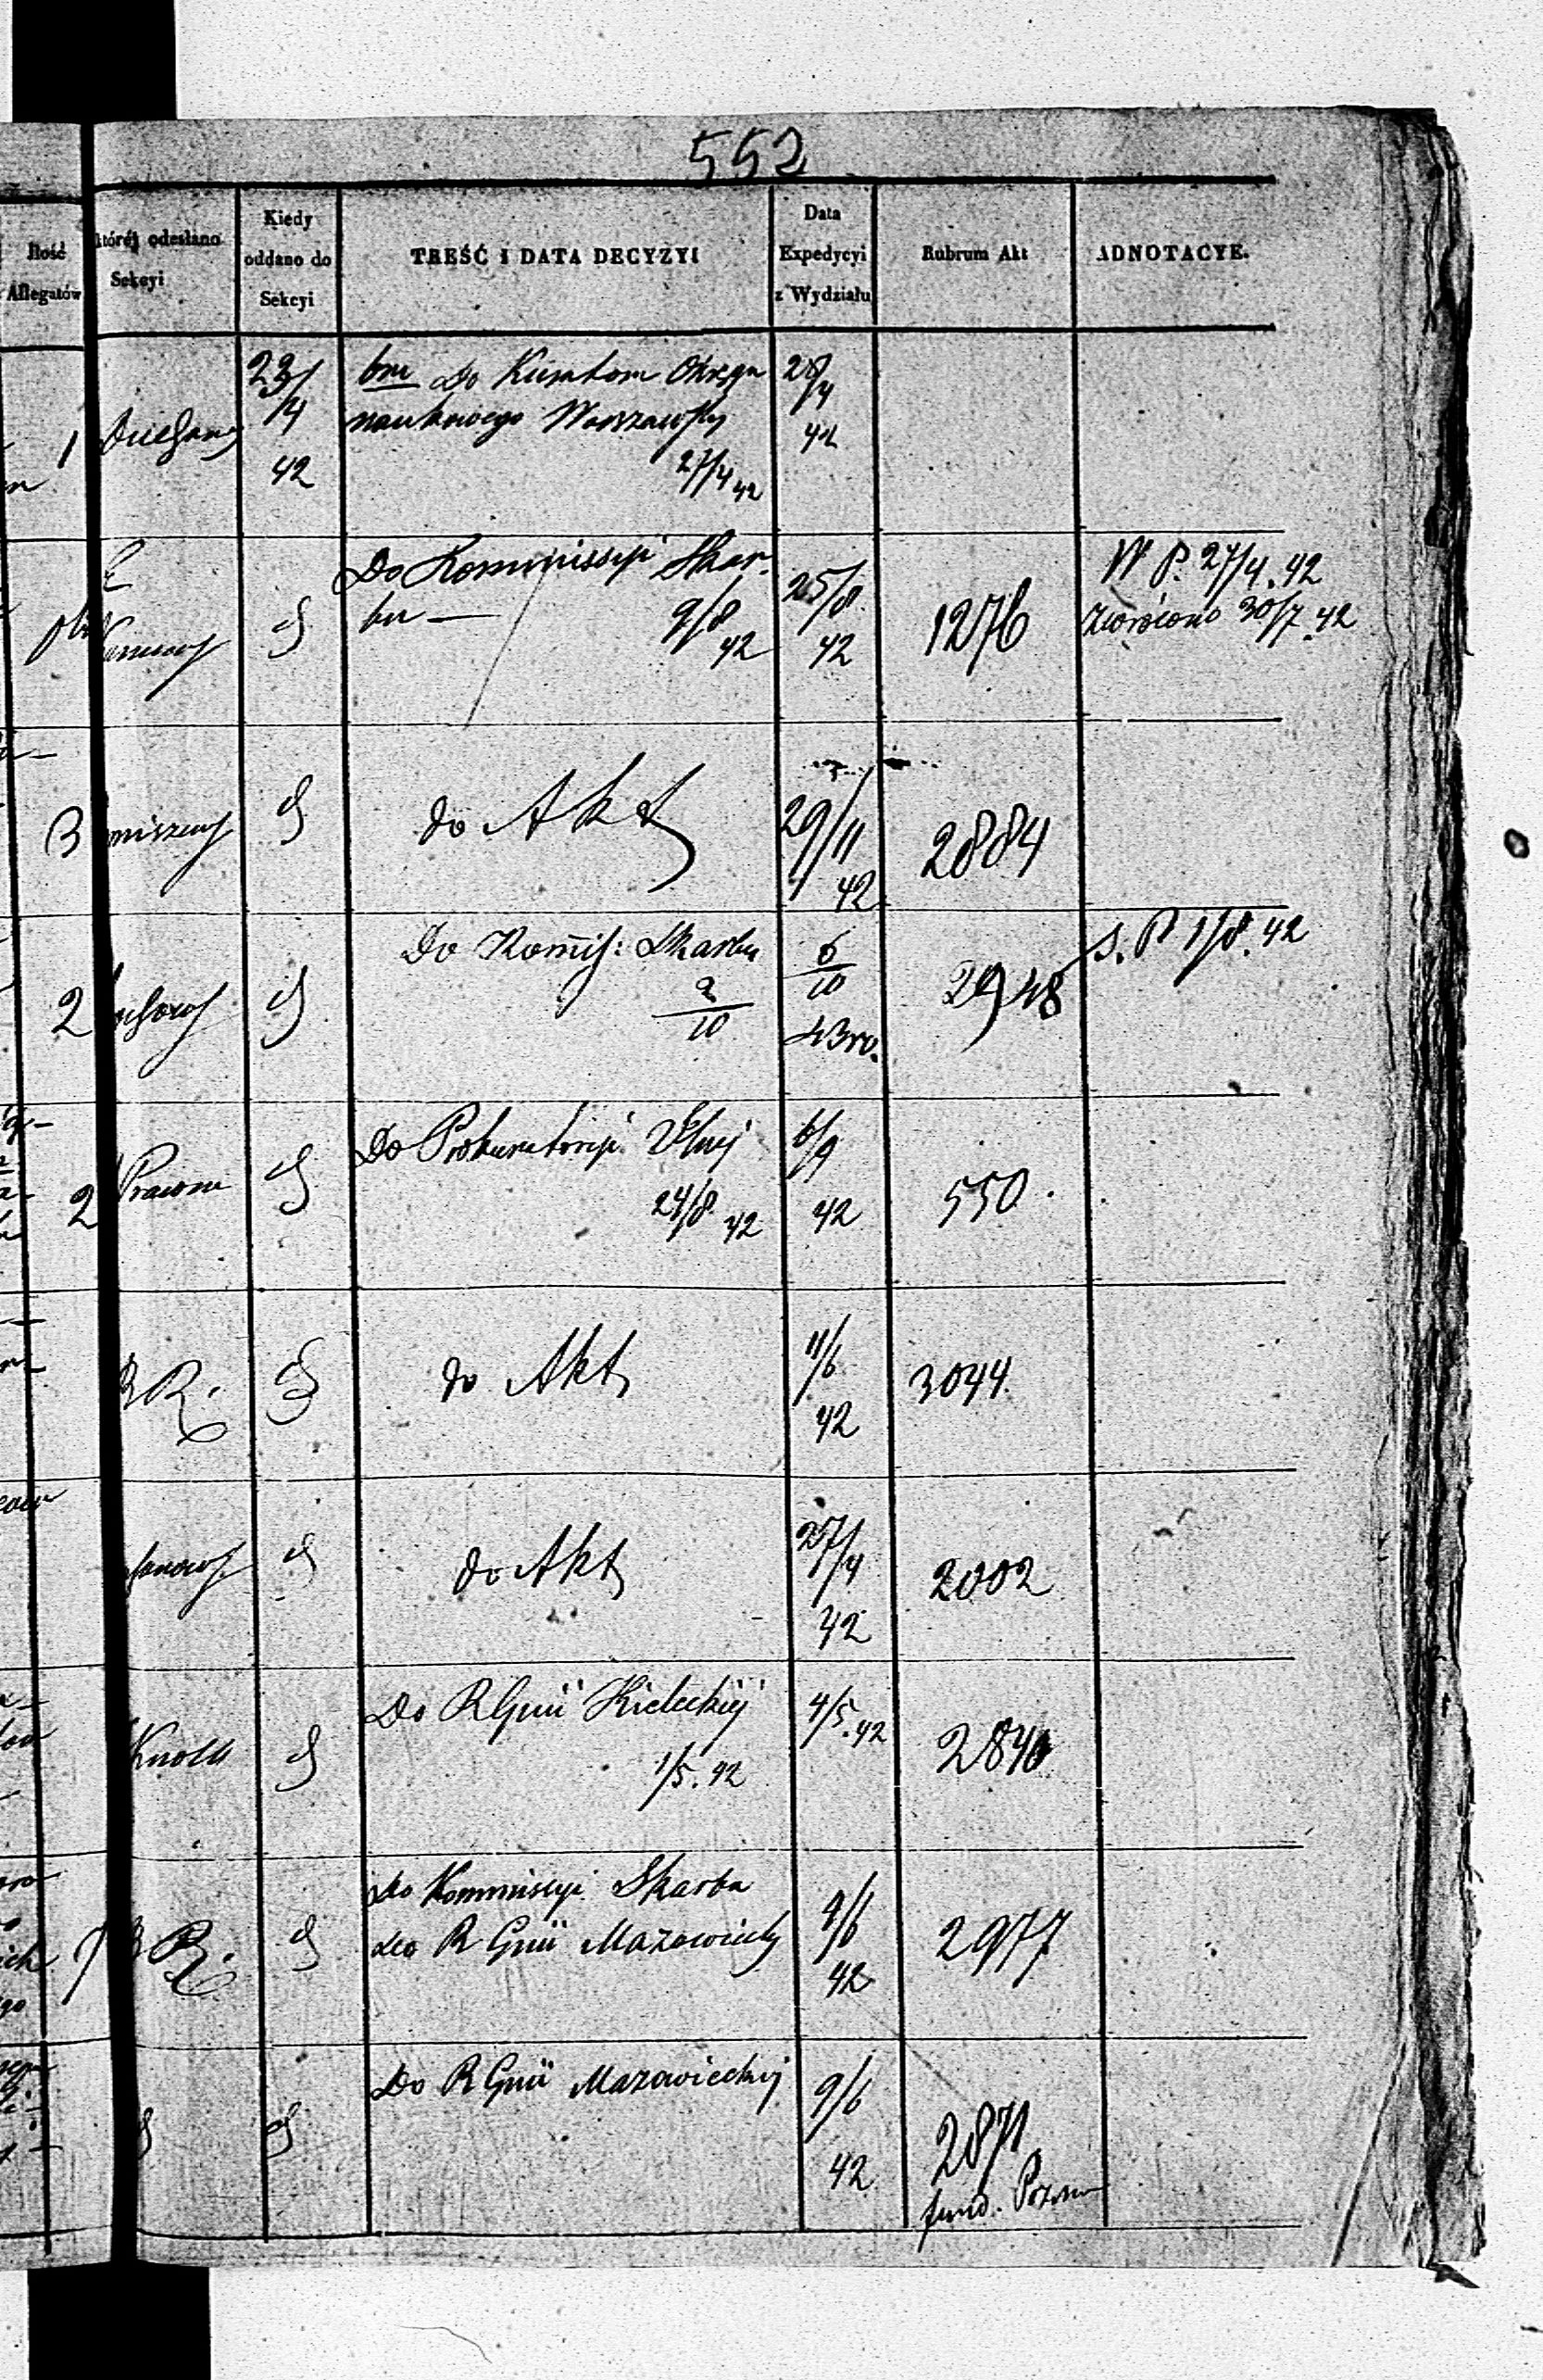 552
Ilość
Allegatów
której odesłano
Sekcyi
Kiedy
oddano do
Sekcyi
TREŚĆ I DATA DECYZYI
Data
Expedycyi
z Wydziału
Rubrum Akt
ADNOTACYE.
1
23/4
42
bm Do Kuratora Okręgu
naukowego Warszawsky
27/4 42
28/4
42
Do Kommissyi Skar-
bu —
9/8
42
25/8
42
1276
W P. 27/4. 42
zwrócono 30/7 42
3
do Akt
29/11
42
2884
2
Do Komis: Skarbu
2/10
6/10
43 ro.
2948
S. P. 1/8. 42
2
Prawna
Do Prokuratoryi
24/8 42
6/9
42
550
R.
do Akt
11/6
42
3044
do Akt
27/4
42
2002
Knoll
Do R Gnii Kieleckiéj
1/5. 42
4/5. 42
2840
R.
do Kommissyi Skarbu
do R Gnii Mazowieck
4/6
42
2977
Do R Gnii Mazowieckiéj
9/6
42
2871
fund.